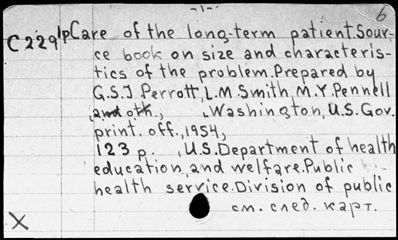 -1-
6
C 229 1p Care of the long-term patient. Sour-
ce book on size and characteris-
tics of the problem. Prepared by
G.S.J Perrott, L.M Smith, M.Y. Pennell
and oth., Washington, U.S. Gov.
print. off., 1954,
123 p. , U.S. Department of health
education, and welfare. Public
health service. Division of public
см. след. карт.
X